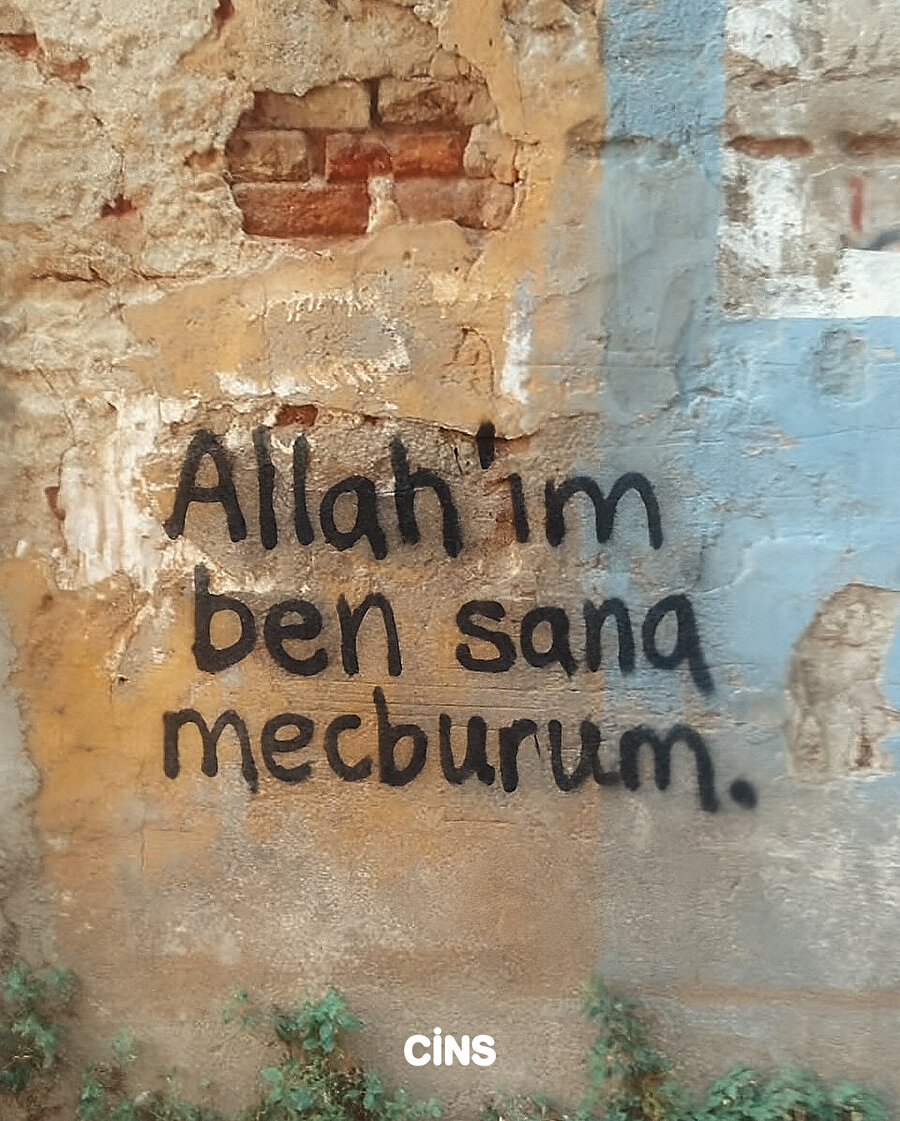 Allah'ım
ben sana
mecburum.
CİNS